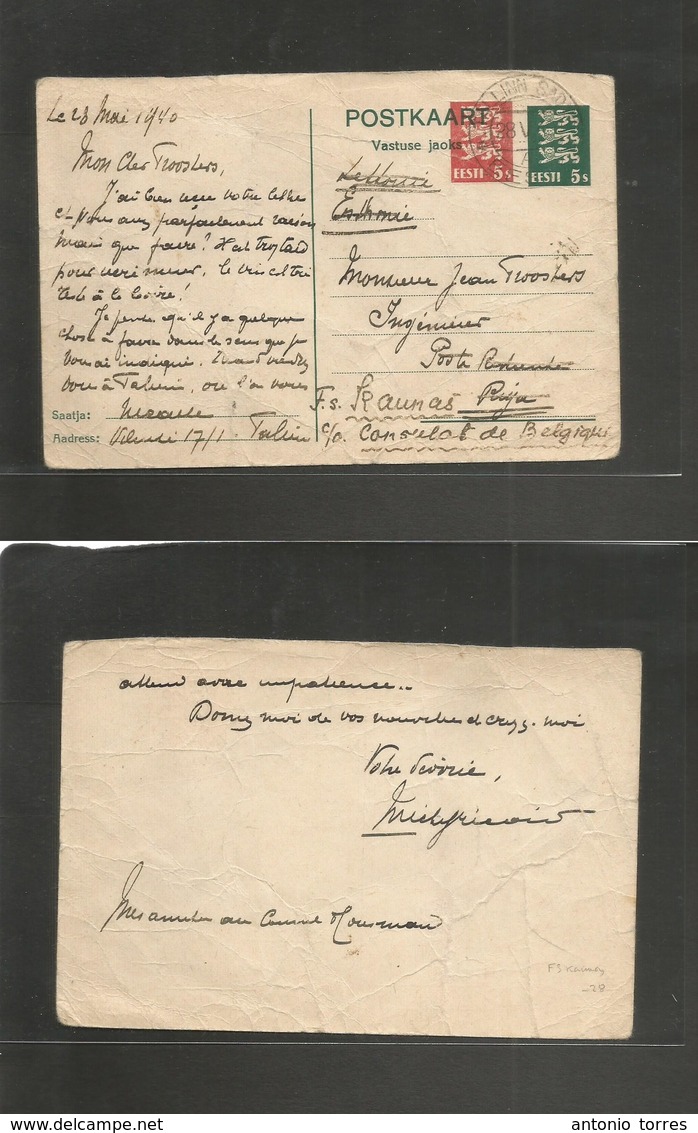 Le 28 Mai 1940
Mon Cher Troosters,
J'ai bien reçu votre lettre
et vous avez parfaitement raison
Mais que faire? Il est trop tard
pour
à la Loire!
Je pense qu'il y a quelque
chose à faire dans le sens que je
vous ai indiqué.
vous à Tallinn, où l'on vous
Saatja:
Aadress: 17/1 Tallinn
POSTKAART
Vastuse jaoks
EESTI 5s
EESTI 5s
LINN
Lettonie
Esthonie
Monsieur Jean Troosters
Ingénieur
Poste Restante
F.s. Kaunas Riga
c/o. Consulat de Belgique
attend avec impatience..
Donnez moi de vos nouvelles et croyez-moi
Votre dévoué,
Mes amitiés au Consul
FS Kaunas
-28
antonio torres